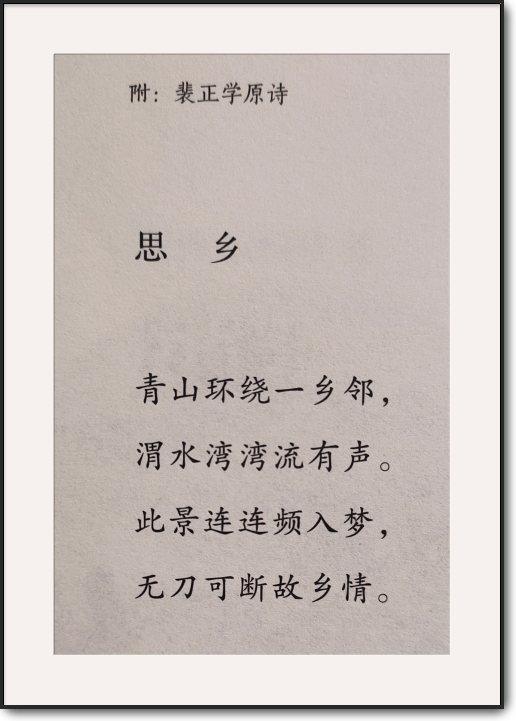 附：裴正学原诗
思 乡
青山环绕一乡邻，
渭水湾湾流有声。
此景连连频入梦，
无刀可断故乡情。